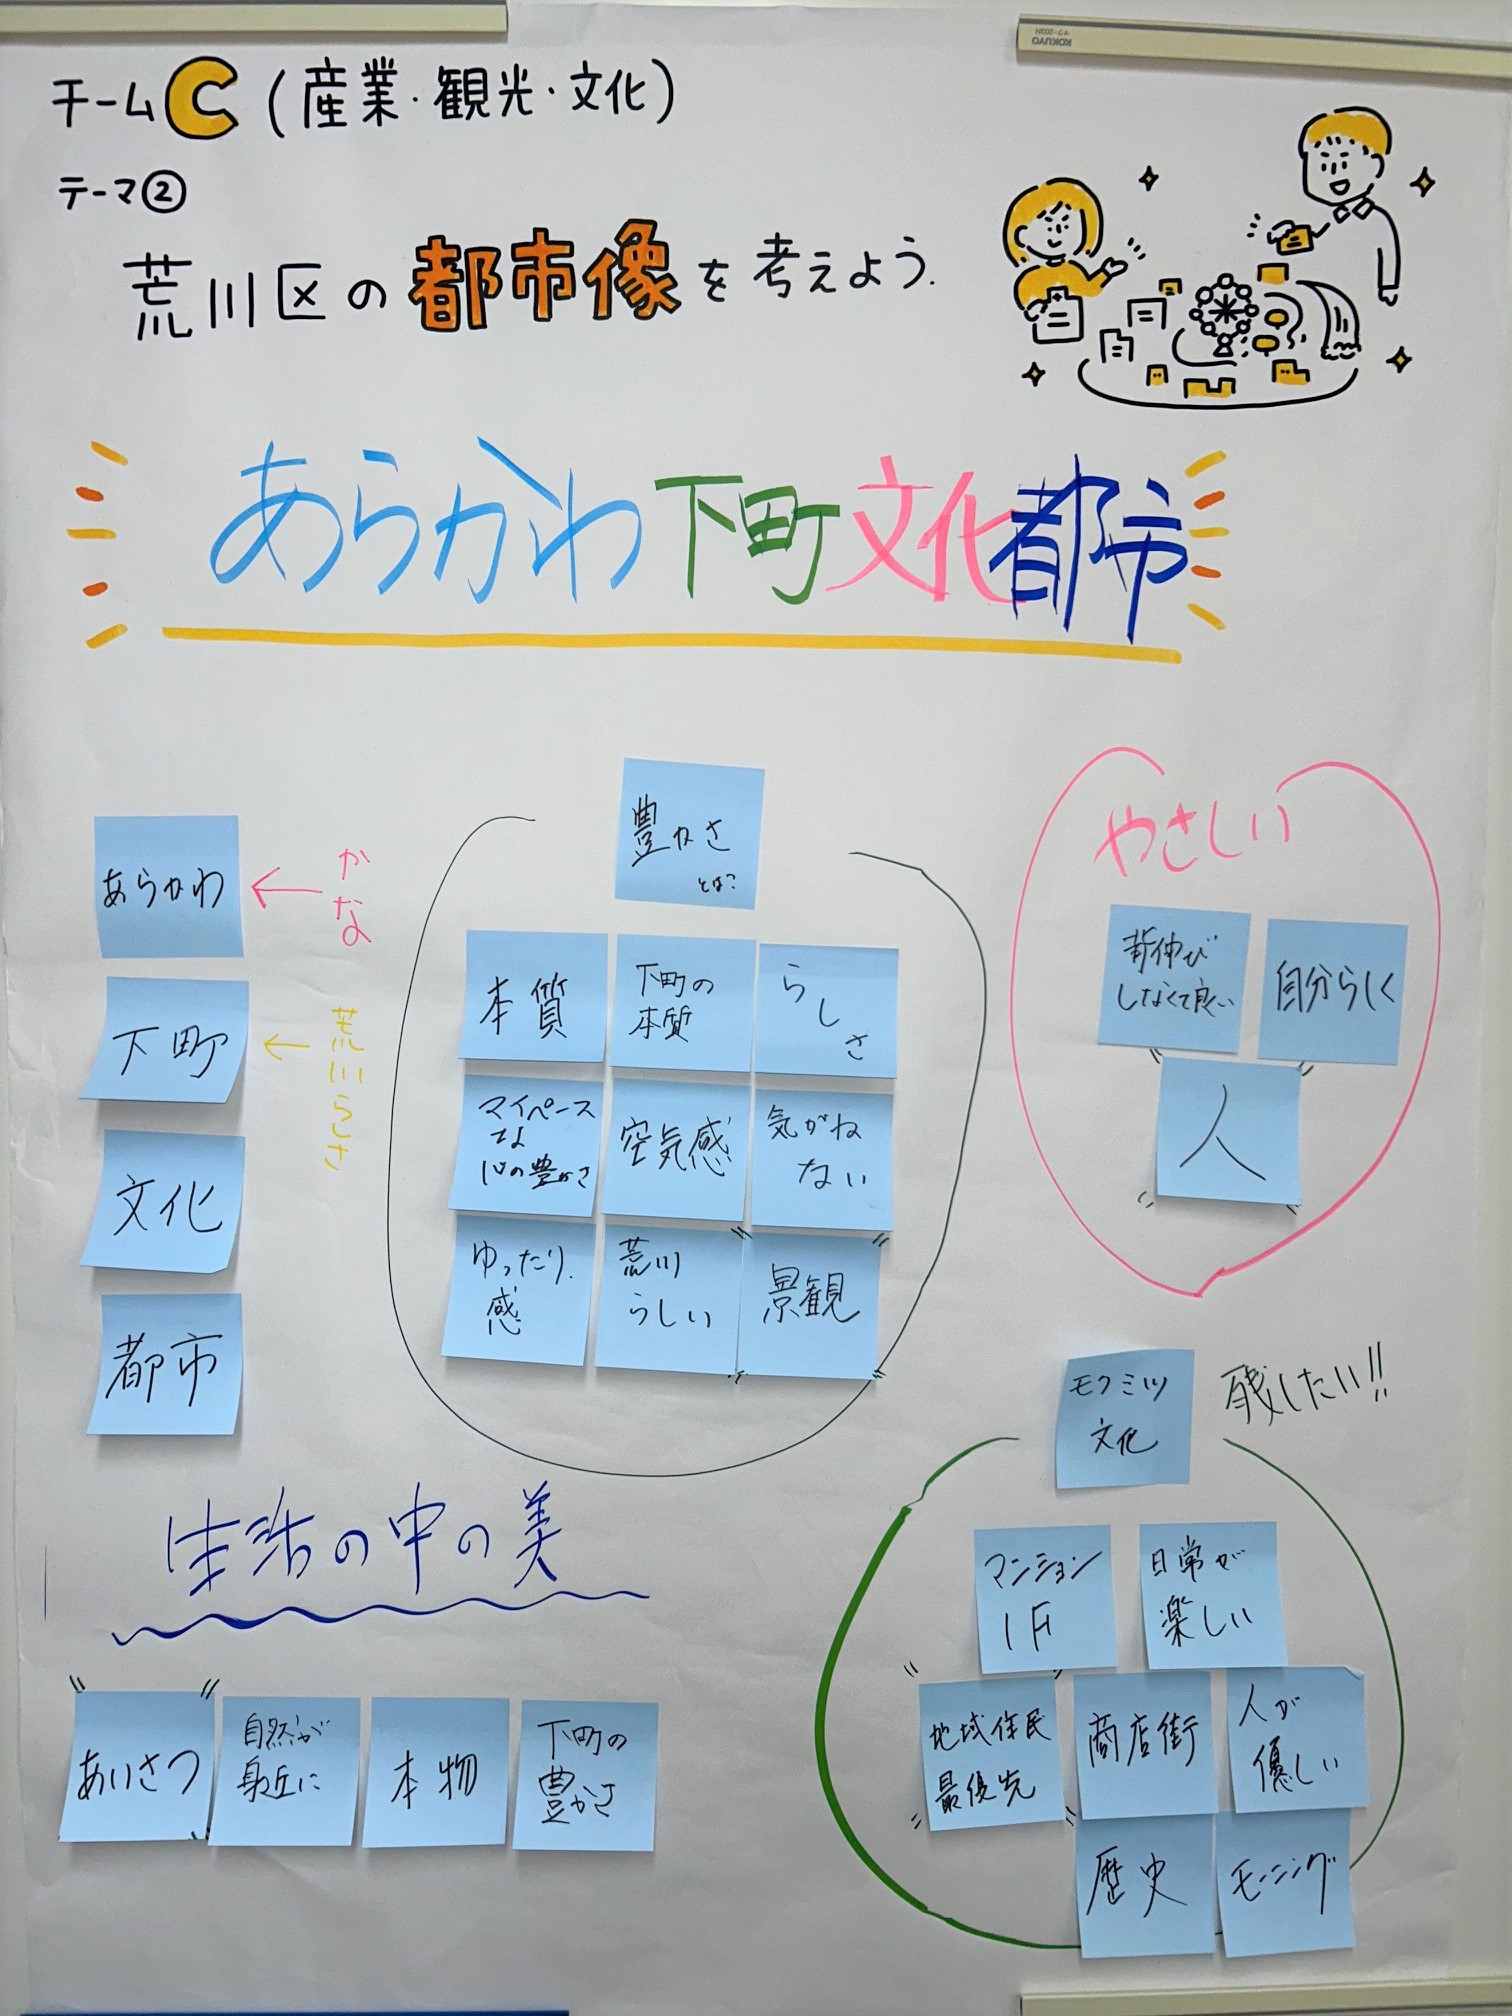 KOKUYO
チームC(産業・観光・文化)
テーマ②
荒川区の都市像を考えよう.
あらかわ下町文化都市
あらかわ
かな
下町
荒川らしさ
文化
都市
豊かさ
とは?
本質
下町の
本質
らしさ
マイペース
な
心の豊かさ
空気感
気がね
ない
ゆったり
感
荒川
らしい
景観
やさしい
背伸び
しなくて良い
自分らしく
人
モクミツ
文化
残したい!!
マンション
1F
日常が
楽しい
地域住民
最優先
商店街
人が
優しい
歴史
モーニング
生活の中の美
あいさつ
自然が
身近に
本物
下町の
豊かさ